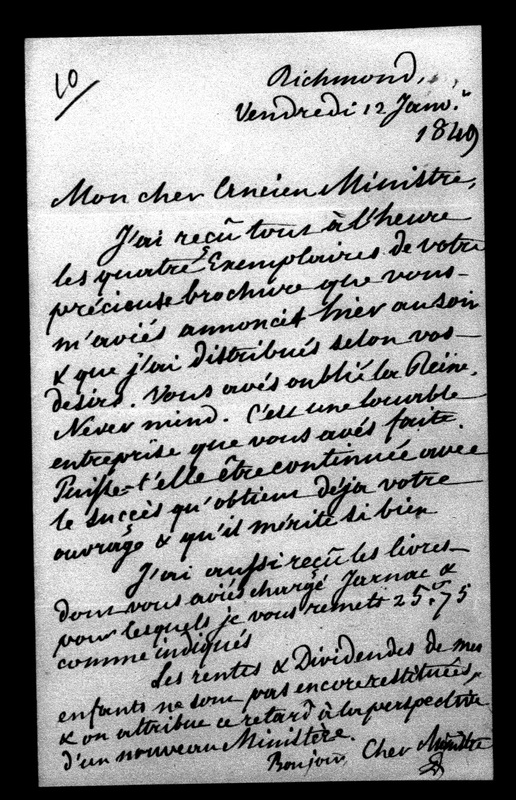 10
Richmond,
Vendredi 12 Janv.
1849
Mon cher Ancien Ministre,
J'ai reçu tout à l'heure
les quatre Exemplaires de votre
précieuse brochure que vous
m'aviés annoncés hier au soir
& que j'ai distribués selon vos
desirs. Vous avés oublié la Reine.
Never mind. C'est une louable
entreprise que vous avés faite.
Puisse-t'elle être continuée avec
le succès qu'obtient déja votre
ouvrage & qu'il mérite si bien
J'ai aussi reçu les livres
dont vous aviés chargé Jarnac &
pour lesquels je vous remets 25 fr 75
comme indiqués
Les rentes & Dividendes de mes
enfants ne sont pas encore restituées,
& on attribue ce retard à la perspective
d'un nouveau Ministère.
Bonjour, Cher Ministre